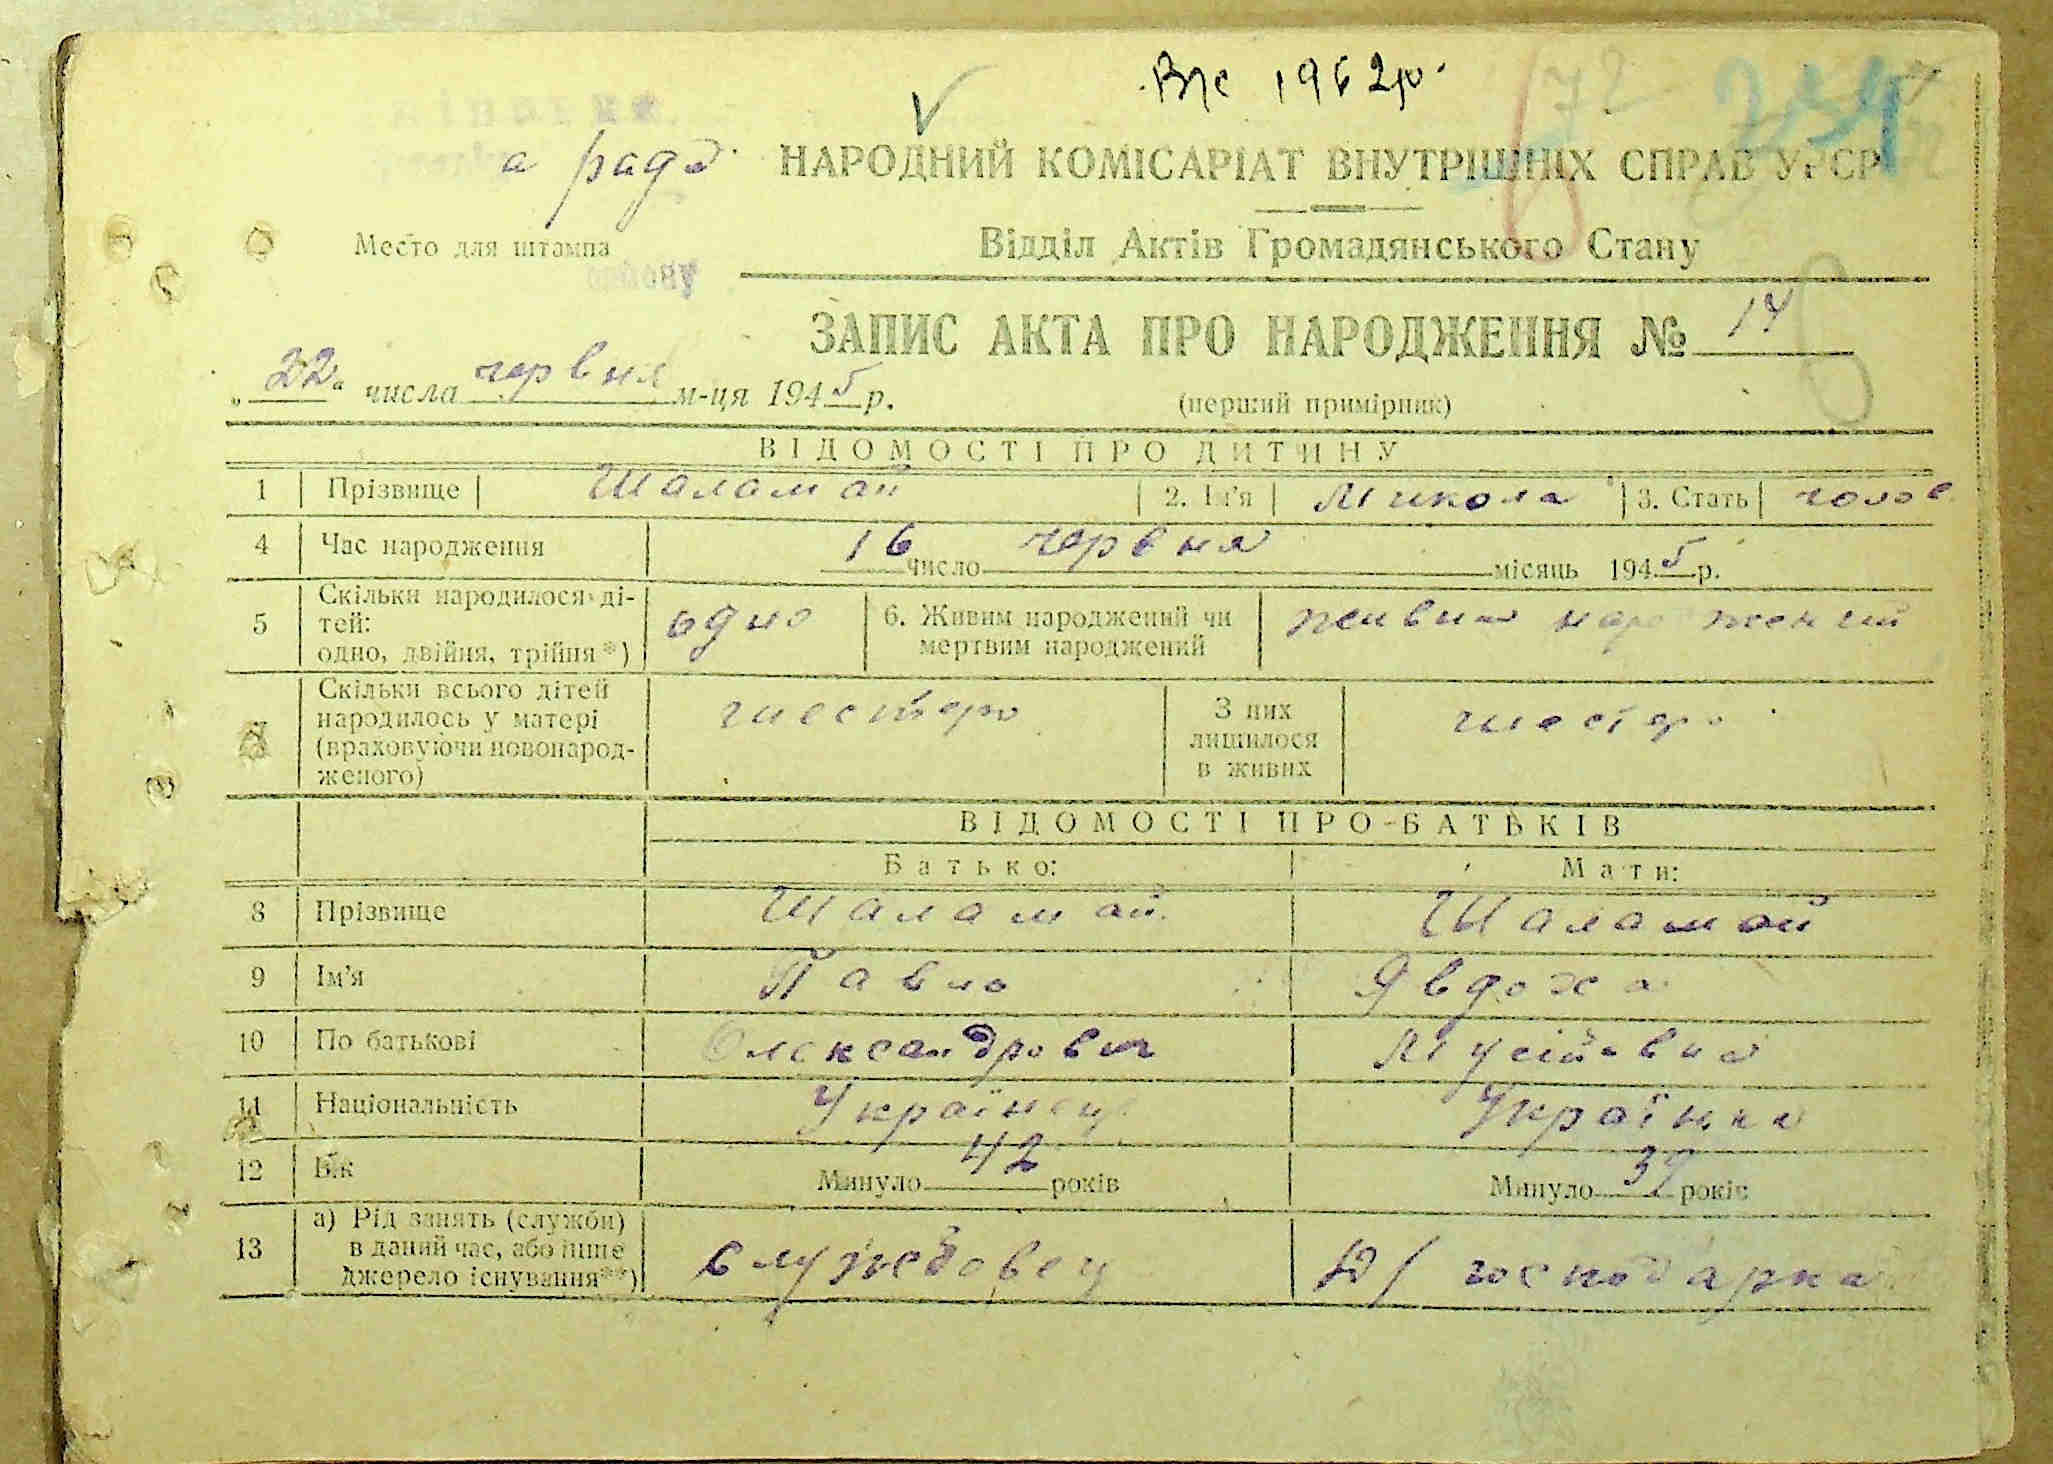 В/с 1962р.
72
а рада
НАРОДНИЙ КОМІСАРІАТ ВНУТРІШНІХ СПРАВ УРСР
Место для штампа
Відділ Актів Громадянського Стану
району
ЗАПИС АКТА ПРО НАРОДЖЕННЯ № 14
„22“ числа червня м-ця 1945 р.
(перший примірник)
ВІДОМОСТІ ПРО ДИТИНУ
1 Прізвище Шаламай 2. Ім'я Микола 3. Стать чолов
4 Час народження 16 число червня місяць 1945 р.
5 Скільки народилося ді-
тей:
одно, двійня, трійня*) одно 6. Живим народжений чи
мертвим народжений живим народжений
7 Скільки всього дітей
народилось у матері
(враховуючи новонарод-
женого) шестеро З них
лишилося
в живих шестеро
ВІДОМОСТІ ПРО БАТЬКІВ
Батько: Мати:
8 Прізвище Шаламай Шаламай
9 Ім'я Павло Явдоха
10 По батькові Олександрович Мусіївна
11 Національність Українець Українка
12 Вік Минуло 42 років Минуло 39 років
13 а) Рід занять (служби)
в даний час, або інше
джерело існування**) службовец Д/господарка